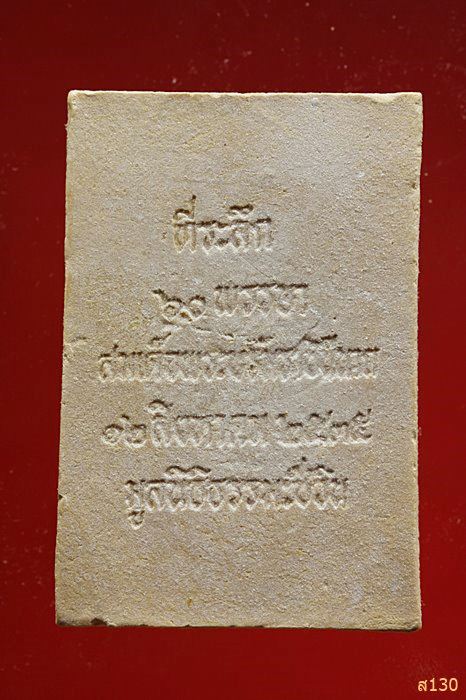 ที่ระลึก
๖๐ พรรษา
สมเด็จพระบรมราชินีนาถ
๑๒ สิงหาคม ๒๕๓๕
มูลนิธิธรรม
ส130